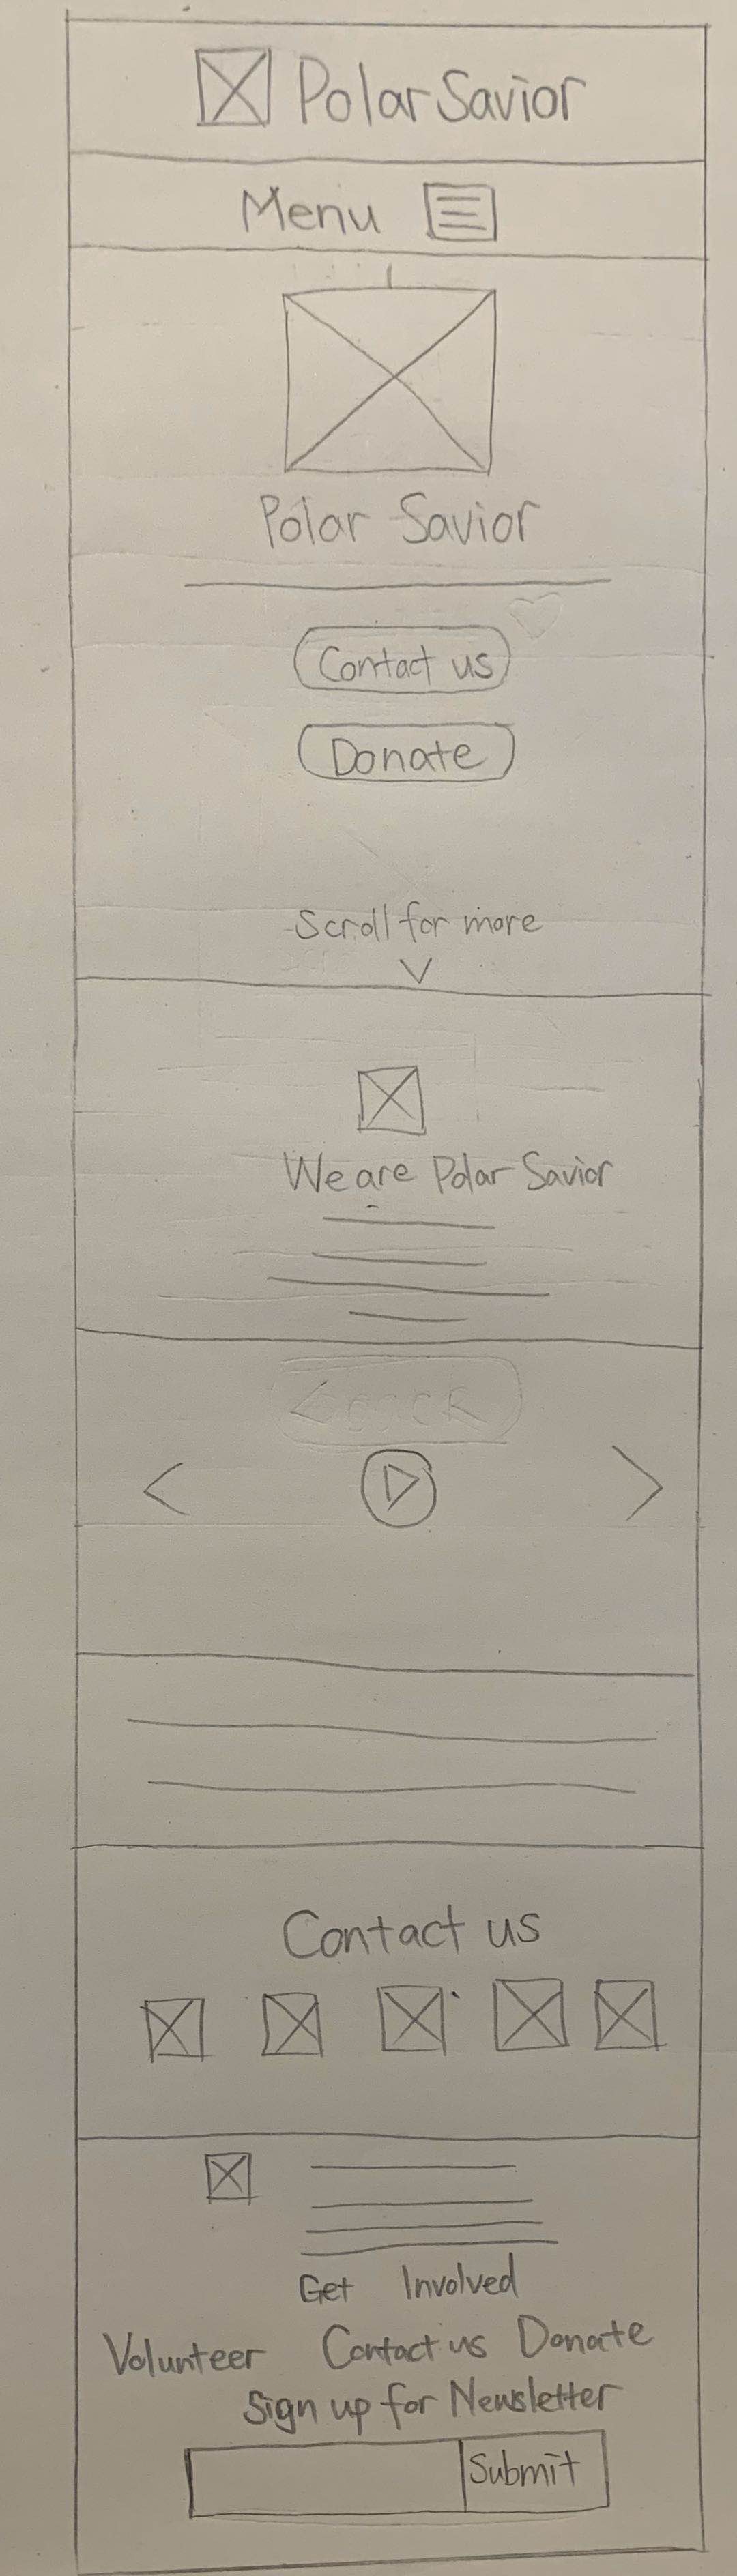 Polar Savior
Menu
Polar Savior
Contact us
Donate
Scroll for more
We are Polar Savior
Contact us
Get Involved
Volunteer Contact us Donate
Sign up for Newsletter
Submit